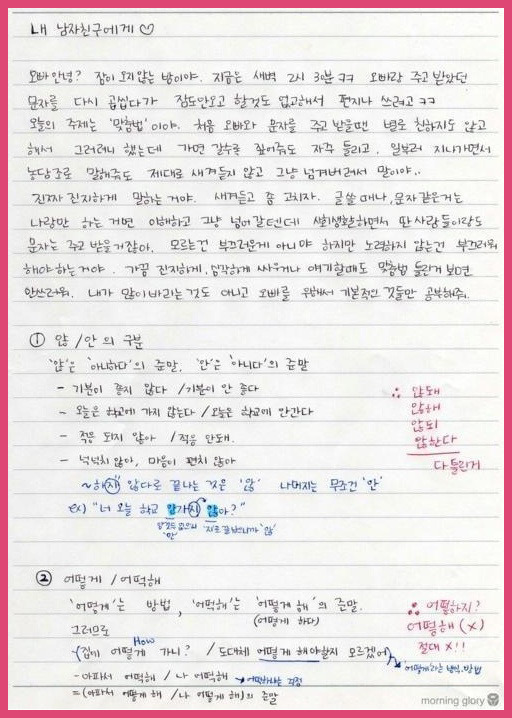 내 남자친구에게 ♡
오빠 안녕? 잠이 오지 않는 밤이야. 지금은 새벽 2시 30분 ㅋㅋ 오빠랑 주고 받았던
문자를 다시 곱씹다가 잠도 안오고 할것도 없고해서 편지나 쓰려고 ㅋㅋ
오늘의 주제는 '맞춤법' 이야. 처음 오빠와 문자를 주고 받을땐 별로 친하지도 않고
해서 그러려니 했는데 가면 갈수록 짚어줘도 자주 틀리고, 일부러 지나가면서
농담조로 말해줘도 제대로 새겨듣지 않고 그냥 넘겨버려서 말이야..
진짜 진지하게 말하는 거야. 새겨듣고 좀 고치자. 글 쓸 때나, 문자 같은거는
나랑만 하는 거면 이해하고 그냥 넘어갈텐데 사회생활하면서 딴 사람들이랑도
문자는 주고 받을거잖아. 모르는건 부끄러운게 아니야 하지만 노력하지 않는건 부끄러워
해야하는거야. 가끔 진지하게, 심각하게 싸우거나 얘기할때도 맞춤법 틀린거 보면
안쓰러워. 내가 많이 바라는 것도 아니고 오빠를 위해서 기본적인 것들만 공부해줘.
① 않/안의 구분
'않'은 '아니하다'의 준말, '안'은 '아니다'의 준말
- 기분이 좋지 않다 / 기분이 안 좋다
- 오늘은 학교에 가지 않는다 / 오늘은 학교에 안간다
- 적응 되지 않아 / 적응 안돼.
- 넉넉치 않아, 마음이 편치 않아
∴ 않돼
않해
않되
않한다
다 틀린거
~하지 않다로 끝나는 것은 '않' 나머지는 무조건 '안'
ex) "너 오늘 학교 안가지 않아?"
'안'
'지'로 끝났으니까 '않'
② 어떻게 / 어떡해
'어떻게'는 방법, '어떡해'는 '어떻게 해'의 준말.
(어떻게 하다)
그러므로
How
- (집에 어떻게 가니? / 도대체 어떻게 해야할지 모르겠어)
어떻게라는 방식, 방법
- 아파서 어떡해 / 나 어떡해
= (아파서 어떻게 해 / 나 어떻게 해)의 준말
∴ 어떻하지?
어떻해 (x)
절대 x!!
morning glory